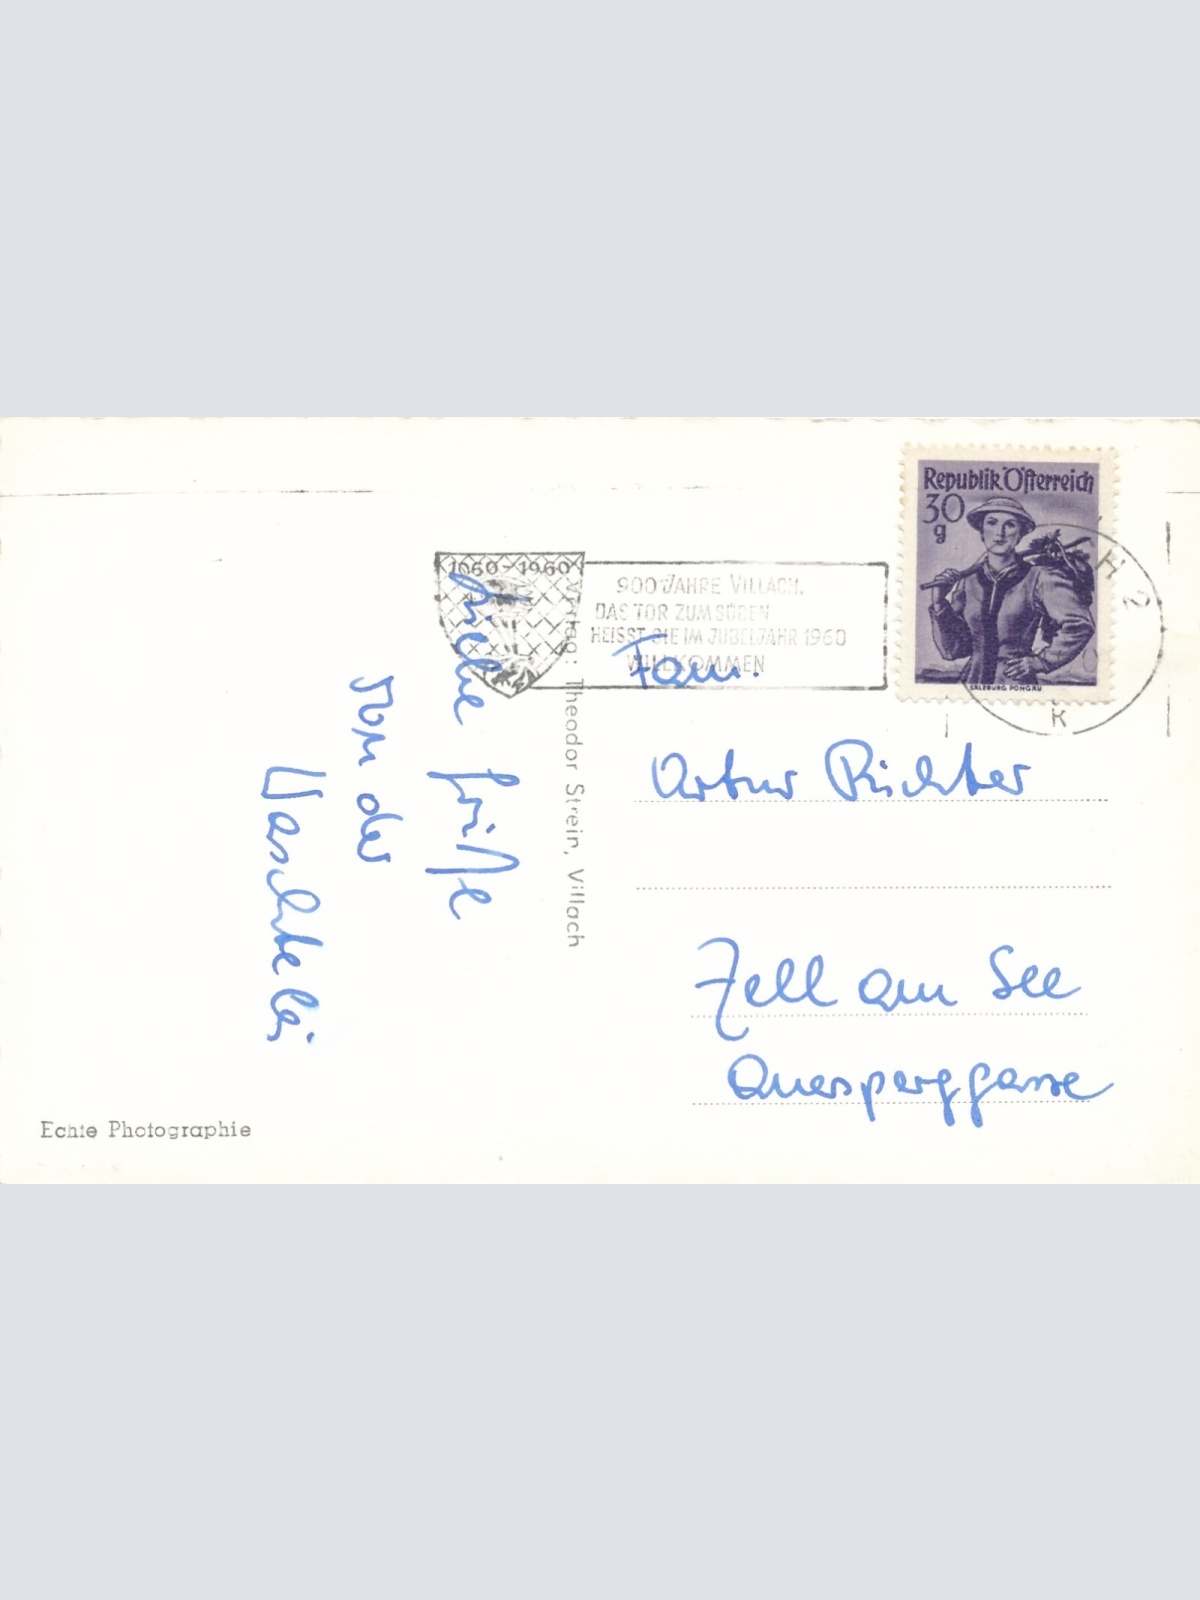 Republik Österreich
30
g
SALZBURG PONGAU
1060-1960
900 JAHRE VILLACH,
DAS TOR ZUM SÜDEN
HEISST SIE IM JUBELJAHR 1960
WILLKOMMEN
H 2
k
Verlag: Theodor Strein, Villach
Grüße
Von der
Fam.
Artur Richter
Zell am See
Echte Photographie